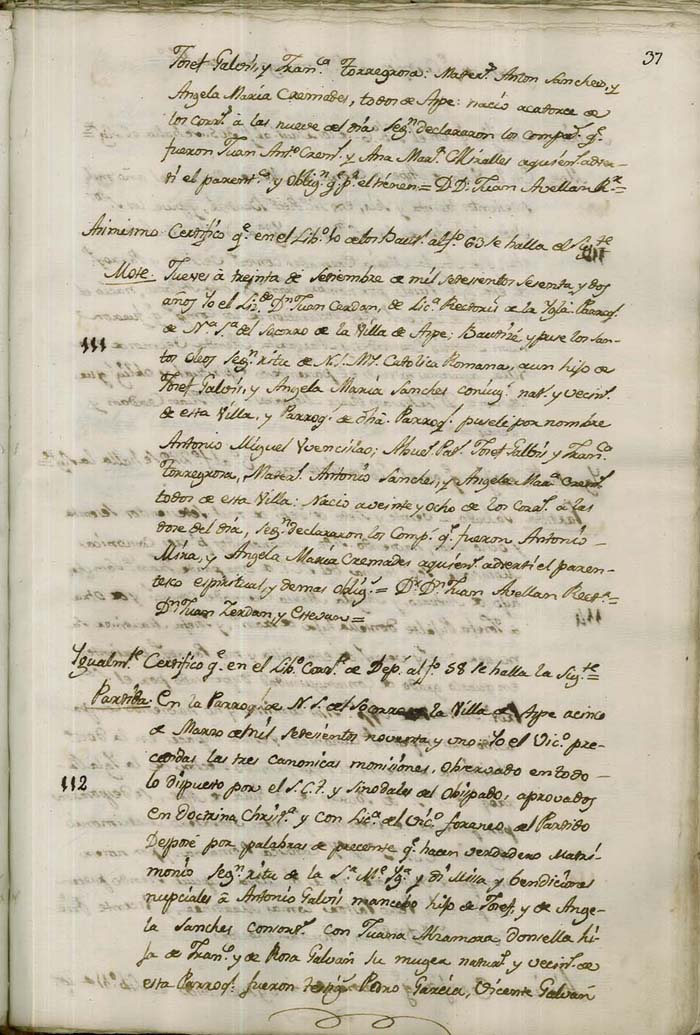 37
Josef Galvis, y Fran.ca Torregrosa: Mater.s Anton Sanches, y
Angela Maria Cremades, todos de Aspe: nació a catorce de
los corr.s à las nueve del dia Seg.n declararon los Comp.s q.e
fueron Juan Ant.o Crem.s y Ana Mar.a Miralles a quien.s adver-
ti el parent.co y Oblig.n q.e p.r el tienen = D.r D.n Juan Avellan R.r =
Asimismo Certifico q.e en el Lib.o de los Baut.s al f.o 63 se halla el Sig.te
Mote. Jueves à treinta de Setiembre de mil setesientos sesenta, y dos
años Yo el Lic.do D.n Juan Cerdan, de Lic.a Rectoris de la Ygl.a Parroq.l
de N.a S.a del Socorro de la Villa de Aspe; Bautizé y puse los San-
111
tos Oleos Seg.n ritu de N. S. M.e Catolica Romana, a un hijo de
Josef Galvis, y Angela Maria Sanches coniug.s nat.s y vecin.s
de esta Villa, y Parroq.s de dha. Parroq.l pusele por nombre
Antonio Miguel Wenceslao; Abuel.s Pat.s Josef Galvis y Fran.ca
Torregrosa, Mater.s Antonio Sanches, y Angela Mar.a Crem.s
todos de esta Villa: Nacio a veinte y ocho de los Corr.s à las
dose del dia, Seg.n declararon los Comp.s q.e fueron Antonio
Mira, y Angela Maria Cremades a quien.s adverti el paren-
tesco espiritual, y demas Oblig.s = D.r D.n Juan Avellan Rect.r =
D.n Juan Zerdan, y Estevan =
Ygualm.te Certifico q.e en el Lib.o Corr.te de Desp.s al f.o 58 se halla la Sig.te =
Partida: En la Parroq.l de N. S. del Socorro de la Villa de Aspe a cinco
de Marzo de mil setesientos noventa y uno: Yo el Vic.o pre-
cendidas las tres canonicas monisiones, Observado en todo
112
lo dispuesto por el S. C. T. y Sinodales del Obispado, aprovados
en Doctrina Christ.a y con Lic.a del Vic.o foraneo del Partido
Desposé por palabras de presente q.e hacen verdadero Matri-
monio Seg.n ritu de la S.a M.e Yg.a y dí Missa y bendiciones
nupciales à Antonio Galvis mancebo hijo de Josef, y de Ange-
la Sanches consort.s con Juana Alzamora, donsella hi-
ja de Fran.co y de Rosa Galvañ su muger natur.s y vecin.s de
esta Parroq.l fueron testig.s Pedro Garcia, Vicente Galvañ